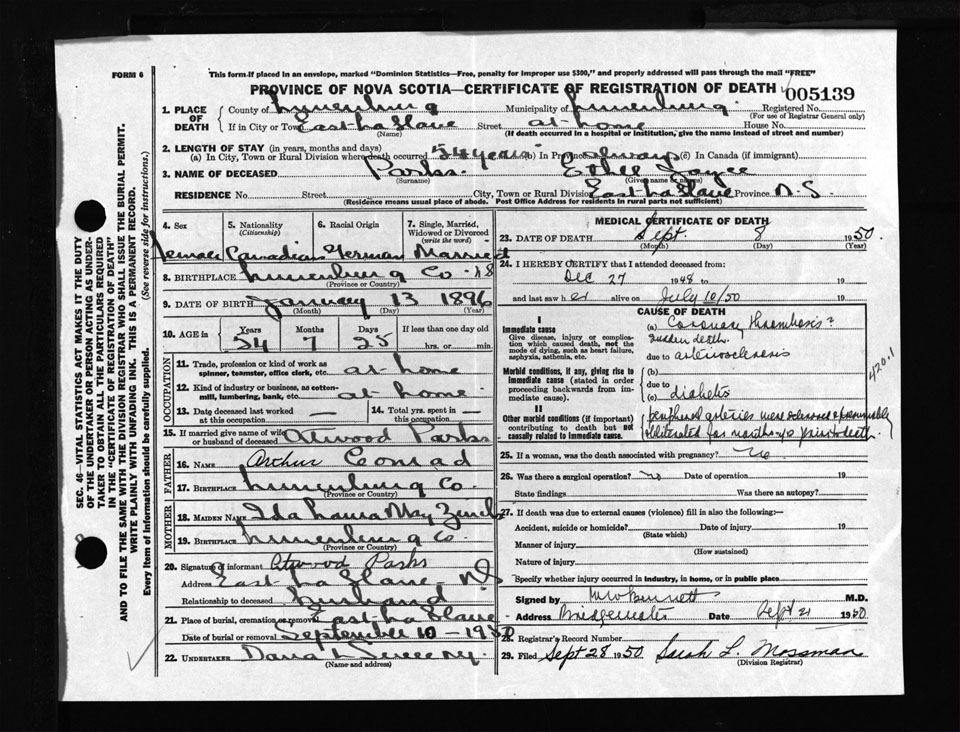 FORM 6
This form if placed in an envelope, marked "Dominion Statistics—Free, penalty for improper use $300," and properly addressed will pass through the mail "FREE"
PROVINCE OF NOVA SCOTIA—CERTIFICATE OF REGISTRATION OF DEATH 005139
1. PLACE OF DEATH
County of Lunenburg Municipality of Lunenburg Registered No.
(For use of Registrar General only)
If in City or Town East LaHave Street at home House No.
(Name) (If death occurred in a hospital or institution, give the name instead of street and number)
2. LENGTH OF STAY (in years, months and days)
(a) In City, Town or Rural Division where death occurred 54 years (b) In Province always (c) In Canada (if immigrant)
3. NAME OF DECEASED Parks.
(Surname) (Given name or names)
RESIDENCE No. Street City, Town or Rural Division East LaHave Province N.S
(Residence means usual place of abode. Post Office Address for residents in rural parts not sufficient)
4. Sex 5. Nationality (Citizenship) 6. Racial Origin 7. Single, Married, Widowed or Divorced (write the word)
Female Canadian German Married
8. BIRTHPLACE Lunenburg Co. N S
(Province or Country)
9. DATE OF BIRTH January 13 1896
(Month) (Day) (Year)
10. AGE in Years Months Days If less than one day old
54 7 25 hrs. or min.
OCCUPATION
11. Trade, profession or kind of work as spinner, teamster, office clerk, etc. at home
12. Kind of industry or business, as cotton-mill, lumbering, bank, etc. at home
13. Date deceased last worked at this occupation — 14. Total yrs. spent in this occupation —
15. If married give name of wife or husband of deceased Atwood Parks
FATHER
16. NAME Arthur Conrad
17. BIRTHPLACE Lunenburg Co.
(Province or Country)
MOTHER
18. MAIDEN NAME Ida Laura May
19. BIRTHPLACE Lunenburg Co.
(Province or Country)
20. Signature of informant Atwood Parks
Address East LaHave, N S
Relationship to deceased husband
21. Place of burial, cremation or removal East LaHave
Date of burial or removal September 10 – 1950
22. UNDERTAKER
(Name and address)
MEDICAL CERTIFICATE OF DEATH
23. DATE OF DEATH Sept. 8 1950
(Month) (Day) (Year)
24. I HEREBY CERTIFY that I attended deceased from:
Dec 27 1948 to 19
and last saw her alive on July 10/50
CAUSE OF DEATH
I
Immediate cause
Give disease, injury or complication which caused death, not the mode of dying, such as heart failure, asphyxia, asthenia, etc.
(a) Coronary thrombosis?
sudden death.
due to arteriosclerosis
Morbid conditions, if any, giving rise to immediate cause (stated in order proceeding backwards from immediate cause).
(b)
due to
(c) diabetis
420.1
II
Other morbid conditions (if important) contributing to death but not causally related to immediate cause.
arteries were
obliterated for months prior to death.
25. If a woman, was the death associated with pregnancy? no
26. Was there a surgical operation? no Date of operation 19
State findings Was there an autopsy?
27. If death was due to external causes (violence) fill in also the following:—
Accident, suicide or homicide? Date of injury 19
(State which)
Manner of injury
(How sustained)
Nature of injury
Specify whether injury occurred in industry, in home, or in public place
Signed by Burnett M.D.
Address Bridgewater Date Sept 21 1950
28. Registrar's Record Number
29. Filed Sept 28 1950 Sarah L. Mossman
(Division Registrar)
SEC. 46—VITAL STATISTICS ACT MAKES IT THE DUTY
OF THE UNDERTAKER OR PERSON ACTING AS UNDER-
TAKER TO OBTAIN ALL THE PARTICULARS REQUIRED
IN THE "CERTIFICATE OF REGISTRATION OF DEATH"
AND TO FILE THE SAME WITH THE DIVISION REGISTRAR WHO SHALL ISSUE THE BURIAL PERMIT.
WRITE PLAINLY WITH UNFADING INK. THIS IS A PERMANENT RECORD.
Every Item of Information should be carefully supplied. (See reverse side for instructions.)